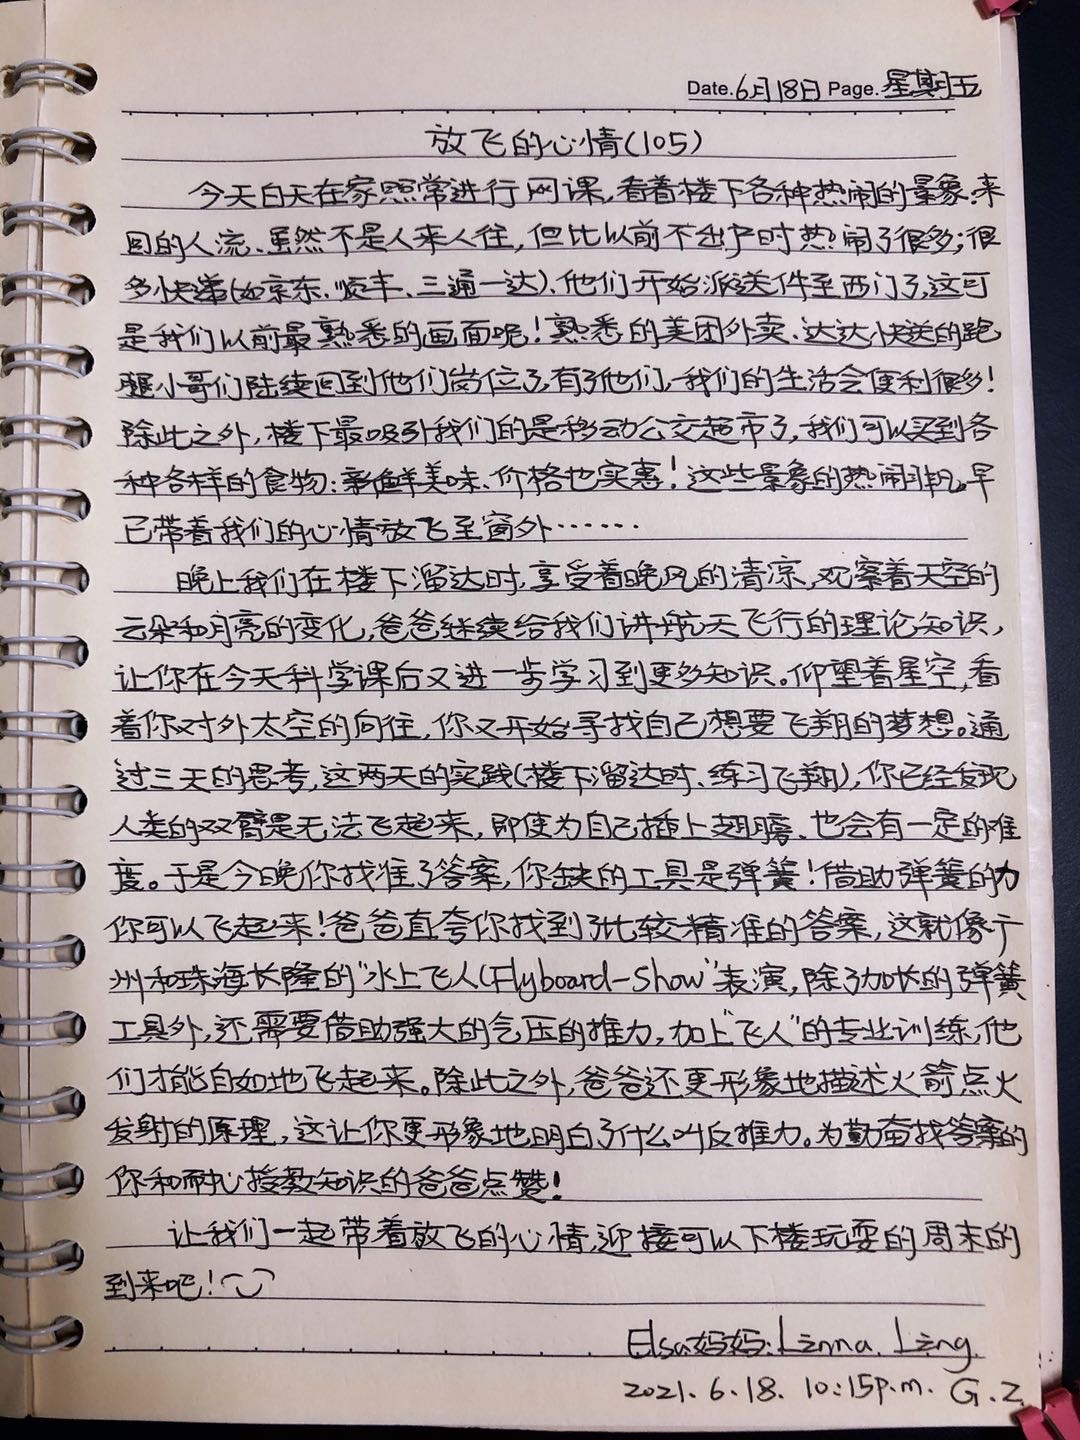 Date.6月18日 Page.星期五
放飞的心情(105)
今天白天在家照常进行网课,看着楼下各种热闹的景象.来
回的人流、虽然不是人来人往,但比以前不出户时热闹了很多;很
多快递(如京东、顺丰、三通一达)、他们开始派送件至西门了,这可
是我们以前最熟悉的画面呢!熟悉的美团外卖、达达快送的跑
腿小哥们陆续回到他们岗位了,有了他们,我们的生活会便利很多!
除此之外,楼下最吸引我们的是移动公交超市了,我们可以买到各
种各样的食物:新鲜美味、价格也实惠!这些景象的热闹非凡。早
已带着我们的心情放飞至窗外……
晚上我们在楼下溜达时,享受着晚风的清凉,观察着天空的
云朵和月亮的变化,爸爸继续给我们讲航天飞行的理论知识,
让你在今天科学课后又进一步学习到更多知识。仰望着星空,看
着你对外太空的向往,你又开始寻找自己想要飞翔的梦想。通
过三天的思考,这两天的实践(楼下溜达时、练习飞翔),你已经发现
人类的双臂是无法飞起来,即使为自己插上翅膀、也会有一定的难
度。于是今晚你找准了答案,你缺的工具是弹簧!借助弹簧的力
你可以飞起来!爸爸直夸你找到了比较精准的答案,这就像广
州和珠海长隆的"水上飞人(Flyboard-Show"表演,除了加长的弹簧
工具外,还需要借助强大的气压的推力,加上"飞人"的专业训练,他
们才能自如地飞起来。除此之外,爸爸还更形象地描述火箭点火
发射的原理,这让你更形象地明白了什么叫反推力。为勤奋找答案的
你和耐心授教知识的爸爸点赞!
让我们一起带着放飞的心情,迎接可以下楼玩耍的周末的
到来吧!
Elsa妈妈:Linna. Ling.
2021.6.18. 10:15p.m. G.Z.